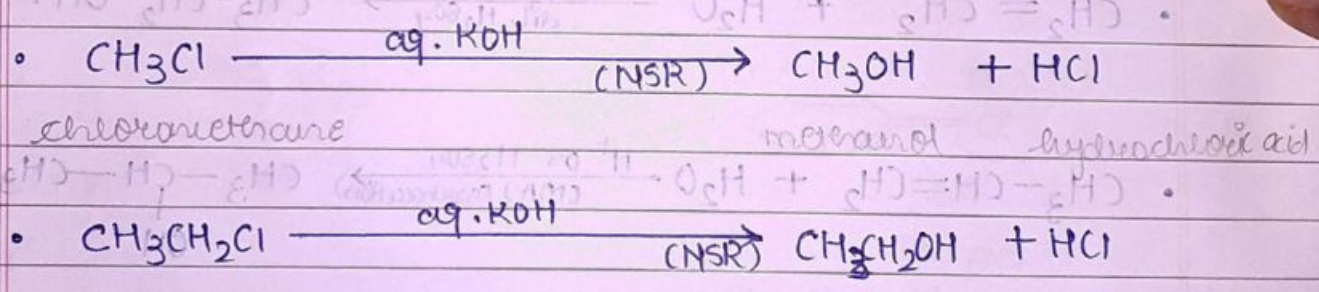 • CH3Cl aq. KOH (NSR) → CH3OH + HCl
chloromethane methanol hydrochloric acid
• CH3CH2Cl aq. KOH (NSR) → CH3CH2OH + HCl